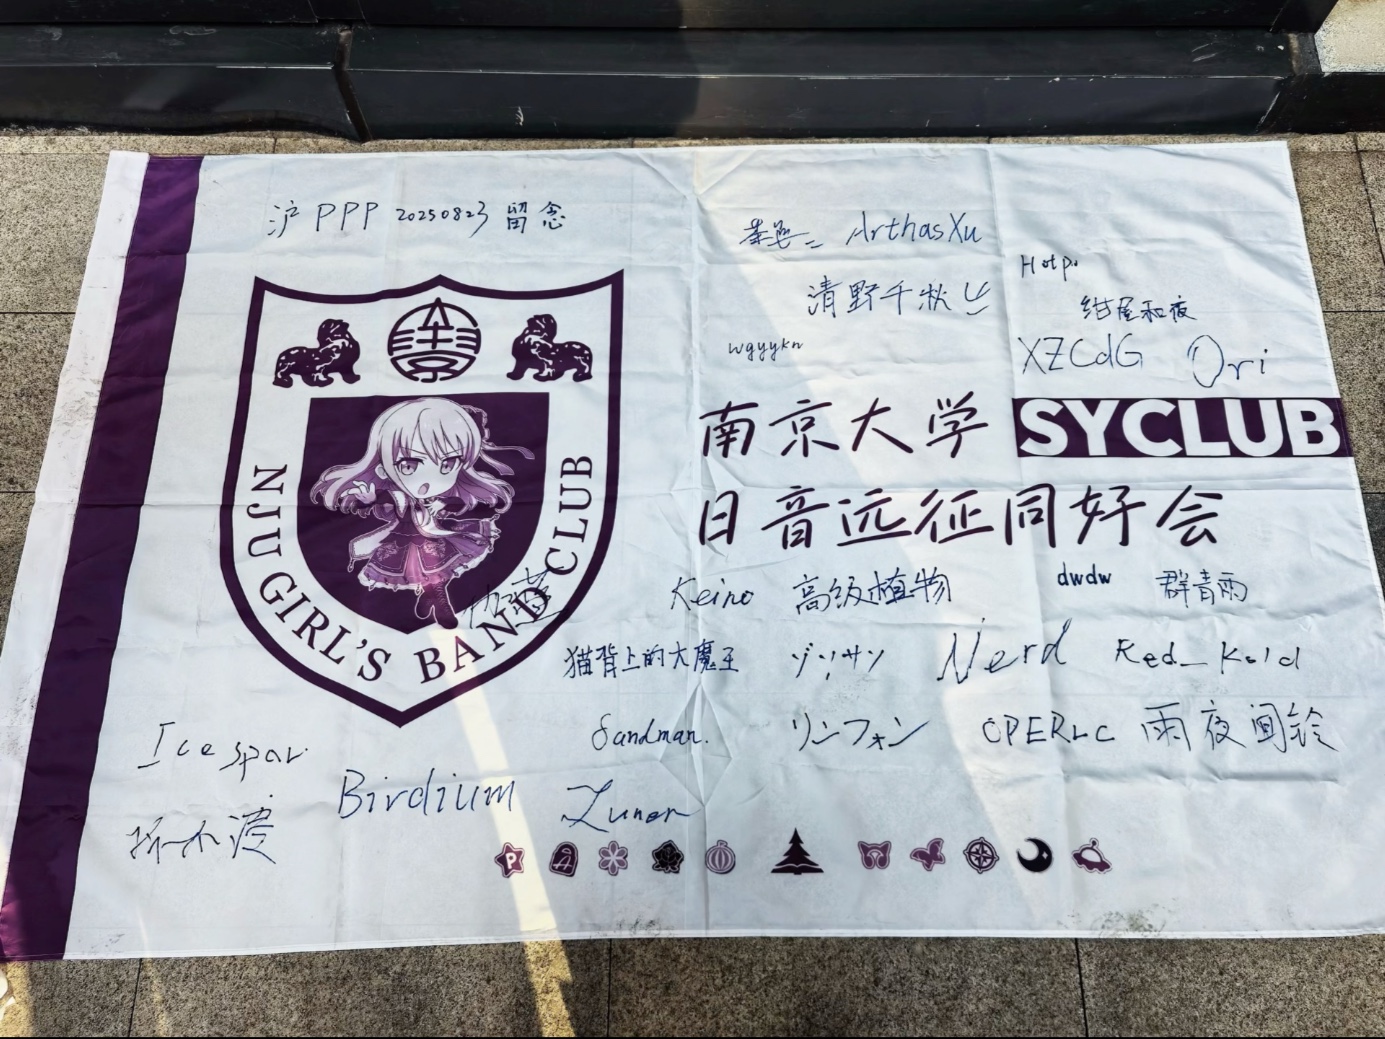 沪 PPP 20250823 留念
ArthasXu
Hotpo
清野千秋
绀屋和夜
wgyykn
XZCdG
Ori
南京大学 SYCLUB
日音远征同好会
NJU GIRL'S BAND CLUB
Keino
高级植物
dwdw
群青雨
猫背上的大魔王
ゾンサン
Nerd
Red_Kold
Icespar
Sandman.
リンフォン
OPERLC
雨夜闻铃
Birdium
Lunar
P